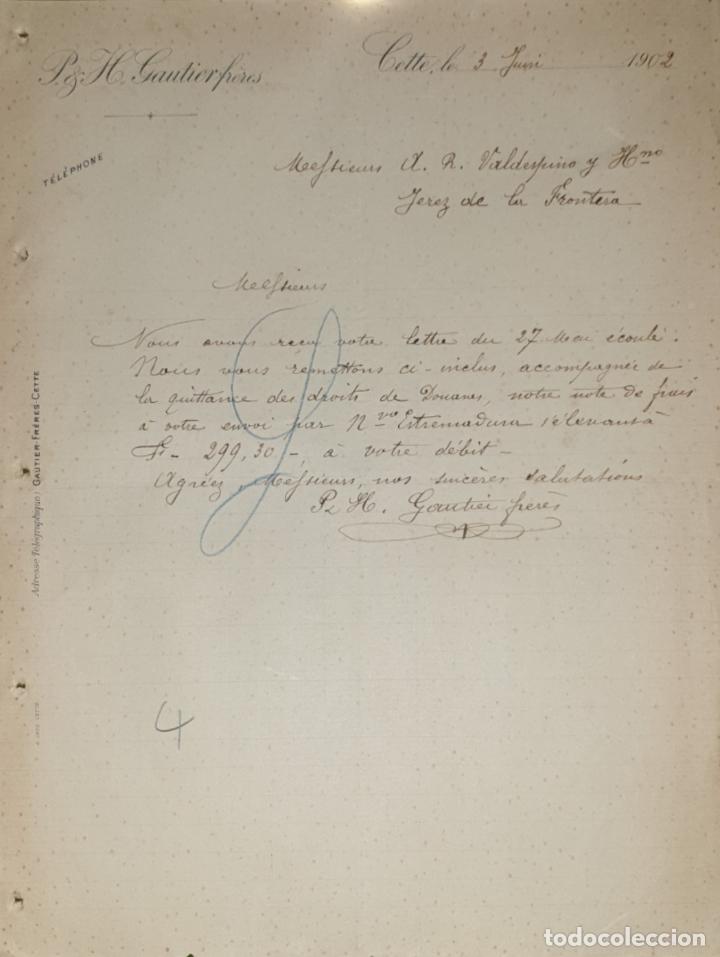 P. & H. Gautier frères
Cette, le 3 Juin 1902
TÉLÉPHONE
Messieurs A. R. Valdespino y Hno
Jerez de la Frontera
Messieurs
Nous avons reçu votre lettre du 27 Mai écoulé.
Nous vous remettons ci-inclus, accompagnée de
la quittance des droits de Douanes, notre note de frais
à votre envoi par Nvo Estremadura s'élevant à
F - 299,30 -, à votre débit -
Agréez, Messieurs, nos sincères salutations
P & H. Gautier frères
Adresse Télégraphique: GAUTIER-FRÈRES-CETTE
4
todocoleccion